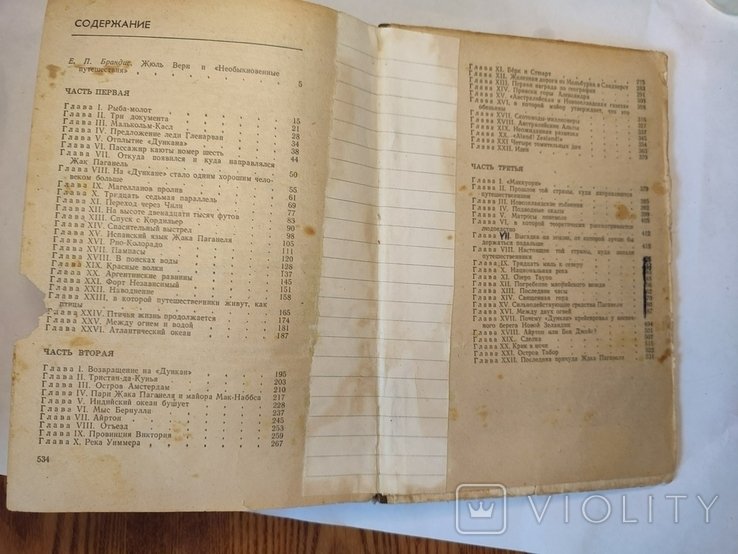 СОДЕРЖАНИЕ
Е. П. Брандис. Жюль Верн и «Необыкновенные
путешествия» 5
ЧАСТЬ ПЕРВАЯ
Глава I. Рыба-молот 15
Глава II. Три документа 21
Глава III. Малькольм-Касл 28
Глава IV. Предложение леди Гленарван 34
Глава V. Отплытие «Дункана» 38
Глава VI. Пассажир каюты номер шесть 44
Глава VII. Откуда появился и куда направлялся
Жак Паганель 50
Глава VIII. На «Дункане» стало одним хорошим чело-
веком больше 55
Глава IX. Магелланов пролив 61
Глава X. Тридцать седьмая параллель 69
Глава XI. Переход через Чили 77
Глава XII. На высоте двенадцати тысяч футов 83
Глава XIII. Спуск с Кордильер 90
Глава XIV. Спасительный выстрел 98
Глава XV. Испанский язык Жака Паганеля 105
Глава XVI. Рио-Колорадо 111
Глава XVII. Пампасы 120
Глава XVIII. В поисках воды 128
Глава XIX. Красные волки 137
Глава XX. Аргентинские равнины 145
Глава XXI. Форт Независимый 151
Глава XXII. Наводнение 158
Глава XXIII, в которой путешественники живут, как
птицы 165
Глава XXIV. Птичья жизнь продолжается 174
Глава XXV. Между огнем и водой 181
Глава XXVI. Атлантический океан 187
ЧАСТЬ ВТОРАЯ
Глава I. Возвращение на «Дункан» 195
Глава II. Тристан-да-Кунья 203
Глава III. Остров Амстердам 210
Глава IV. Пари Жака Паганеля и майора Мак-Наббса 217
Глава V. Индийский океан бушует 228
Глава VI. Мыс Бернулли 237
Глава VII. Айртон 245
Глава VIII. Отъезд 253
Глава IX. Провинция Виктория 259
Глава X. Река Уиммера 267
534
Глава XI. Бёрк и Стюарт 275
Глава XII. Железная дорога из Мельбурна в Сандхерст
Глава XIII. Первая награда по географии
Глава XIV. Прииски горы Александра
Глава XV. «Австралийская и Новозеландская газета»
Глава XVI, в которой майор утверждает, что это
обезьяны
Глава XVII. Скотоводы-миллионеры
Глава XVIII. Австралийские Альпы
Глава XIX. Неожиданная развязка
Глава XX. «Aland! Zealand!»
Глава XXI. Четыре томительных дня
Глава XXII. Идем
ЧАСТЬ ТРЕТЬЯ
Глава I. «Маккуори»
Глава II. Прошлое той страны, куда направляются
путешественники
Глава III. Новозеландские избиения
Глава IV. Подводные скалы
Глава V. Матросы поневоле
Глава VI, в которой теоретически рассматривается
людоедство
Глава VII. Высадка на землю, от которой лучше бы
держаться подальше
Глава VIII. Настоящее той страны, куда попали
путешественники
Глава IX. Тридцать миль к северу
Глава X. Национальная река
Глава XI. Озеро Таупо
Глава XII. Погребение маорийского вождя
Глава XIII. Последние часы
Глава XIV. Священная гора
Глава XV. Сильнодействующие средства Паганеля
Глава XVI. Между двух огней
Глава XVII. Почему «Дункан» крейсировал у восточ-
ного берега Новой Зеландии
Глава XVIII. Айртон или Бен Джойс?
Глава XIX. Сделка
Глава XX. Крик в ночи
Глава XXI. Остров Табор
Глава XXII. Последняя причуда Жака Паганеля
VIOLITY